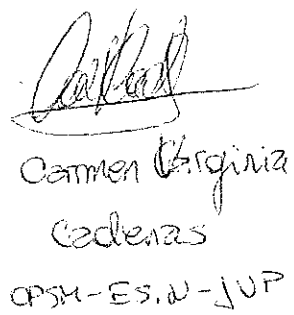 Carmen Virginia
Cadenas
CPSM-ES.N-JVP